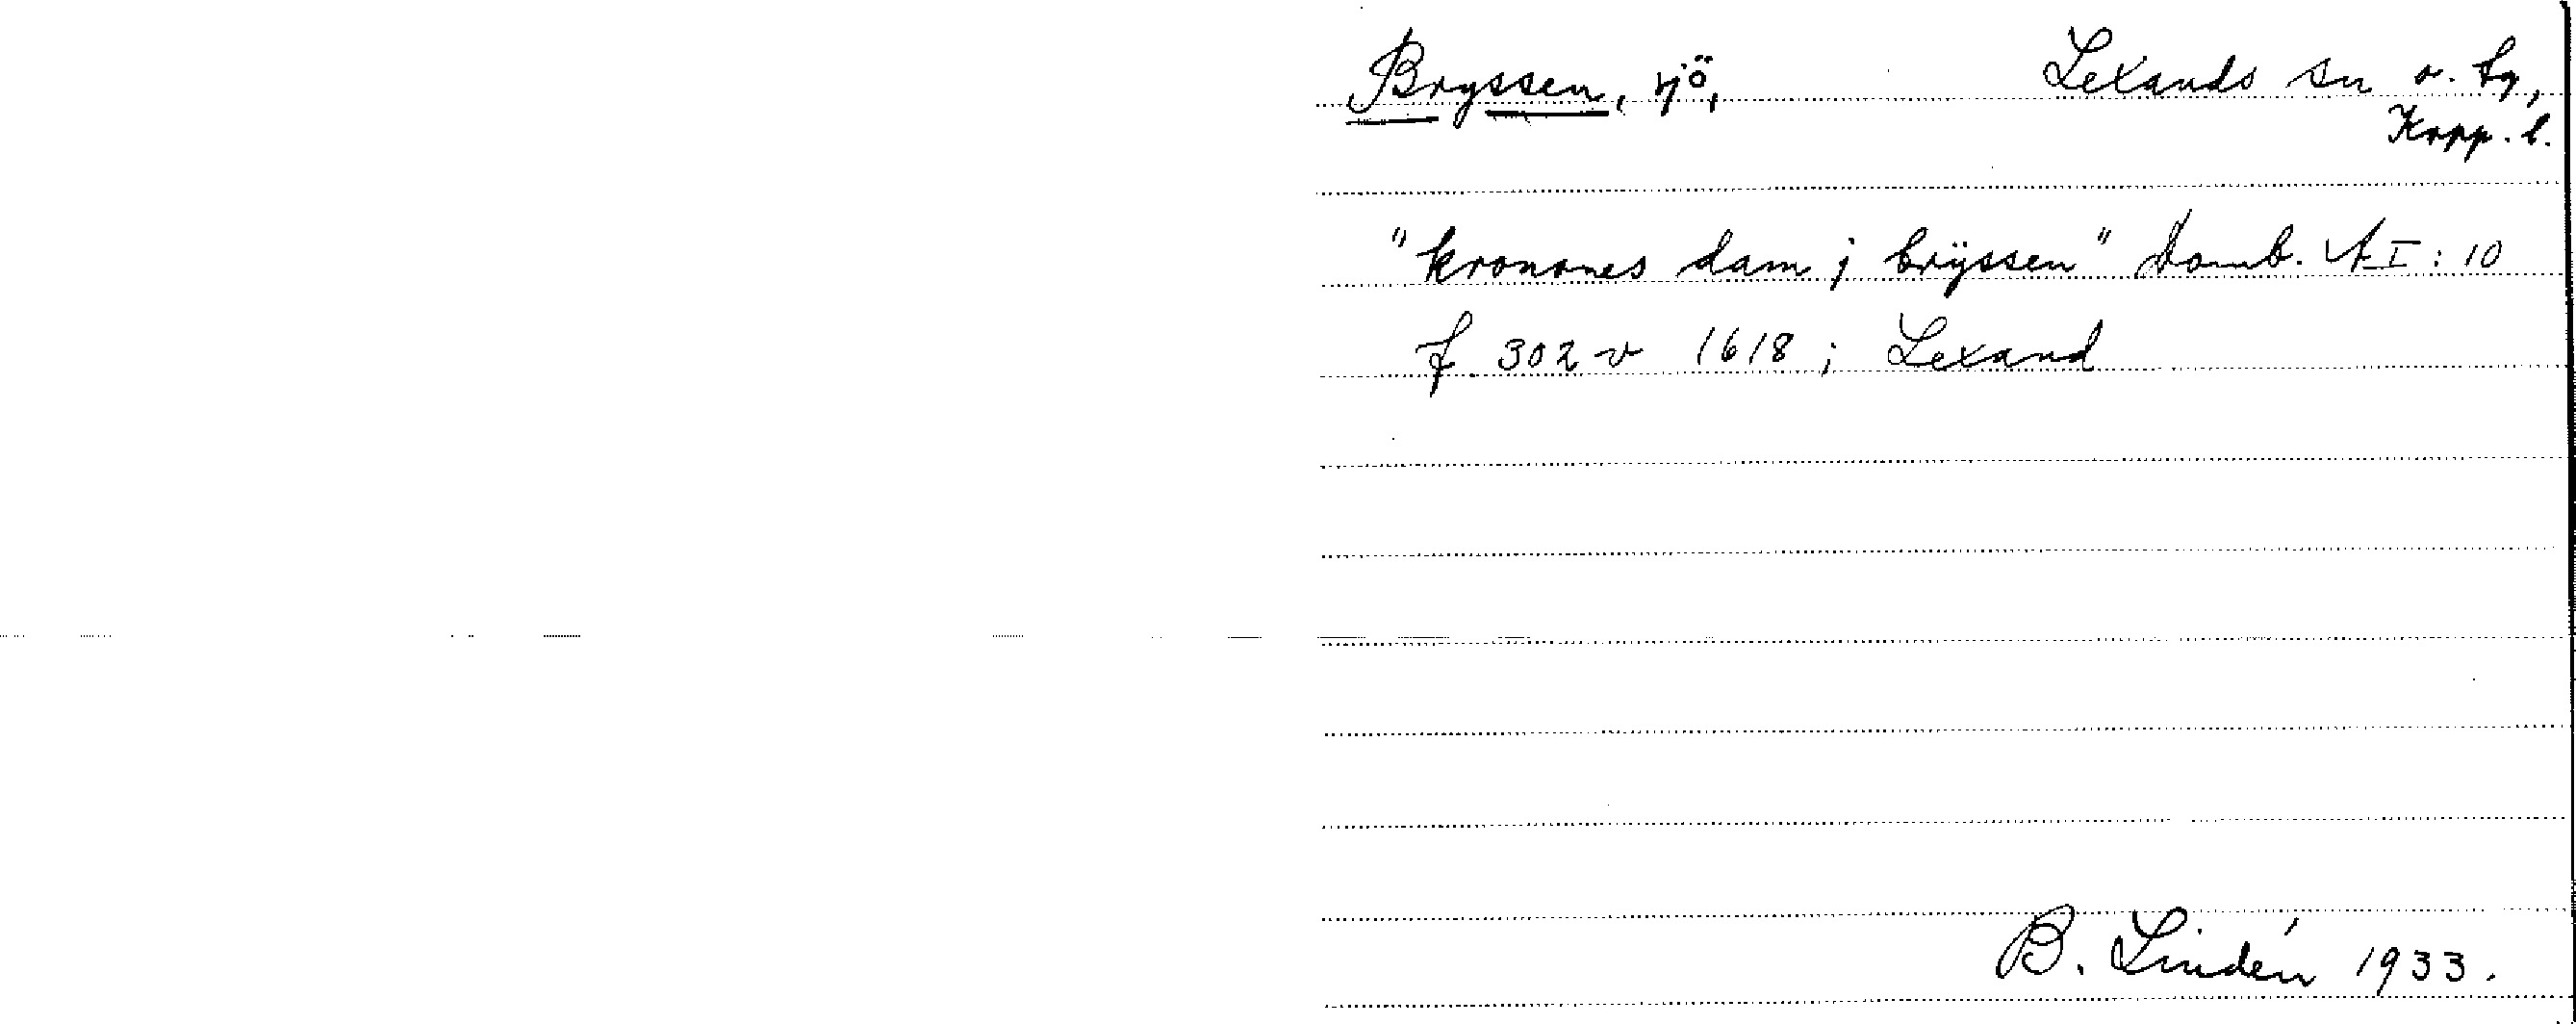 Bryssen, sjö, Lexands sn o. tg,
Kopp. l.
"kronones dam j brÿssen" Domb. AI: 10
f. 302 v 1618; Lexand
B. Lindén 1933.